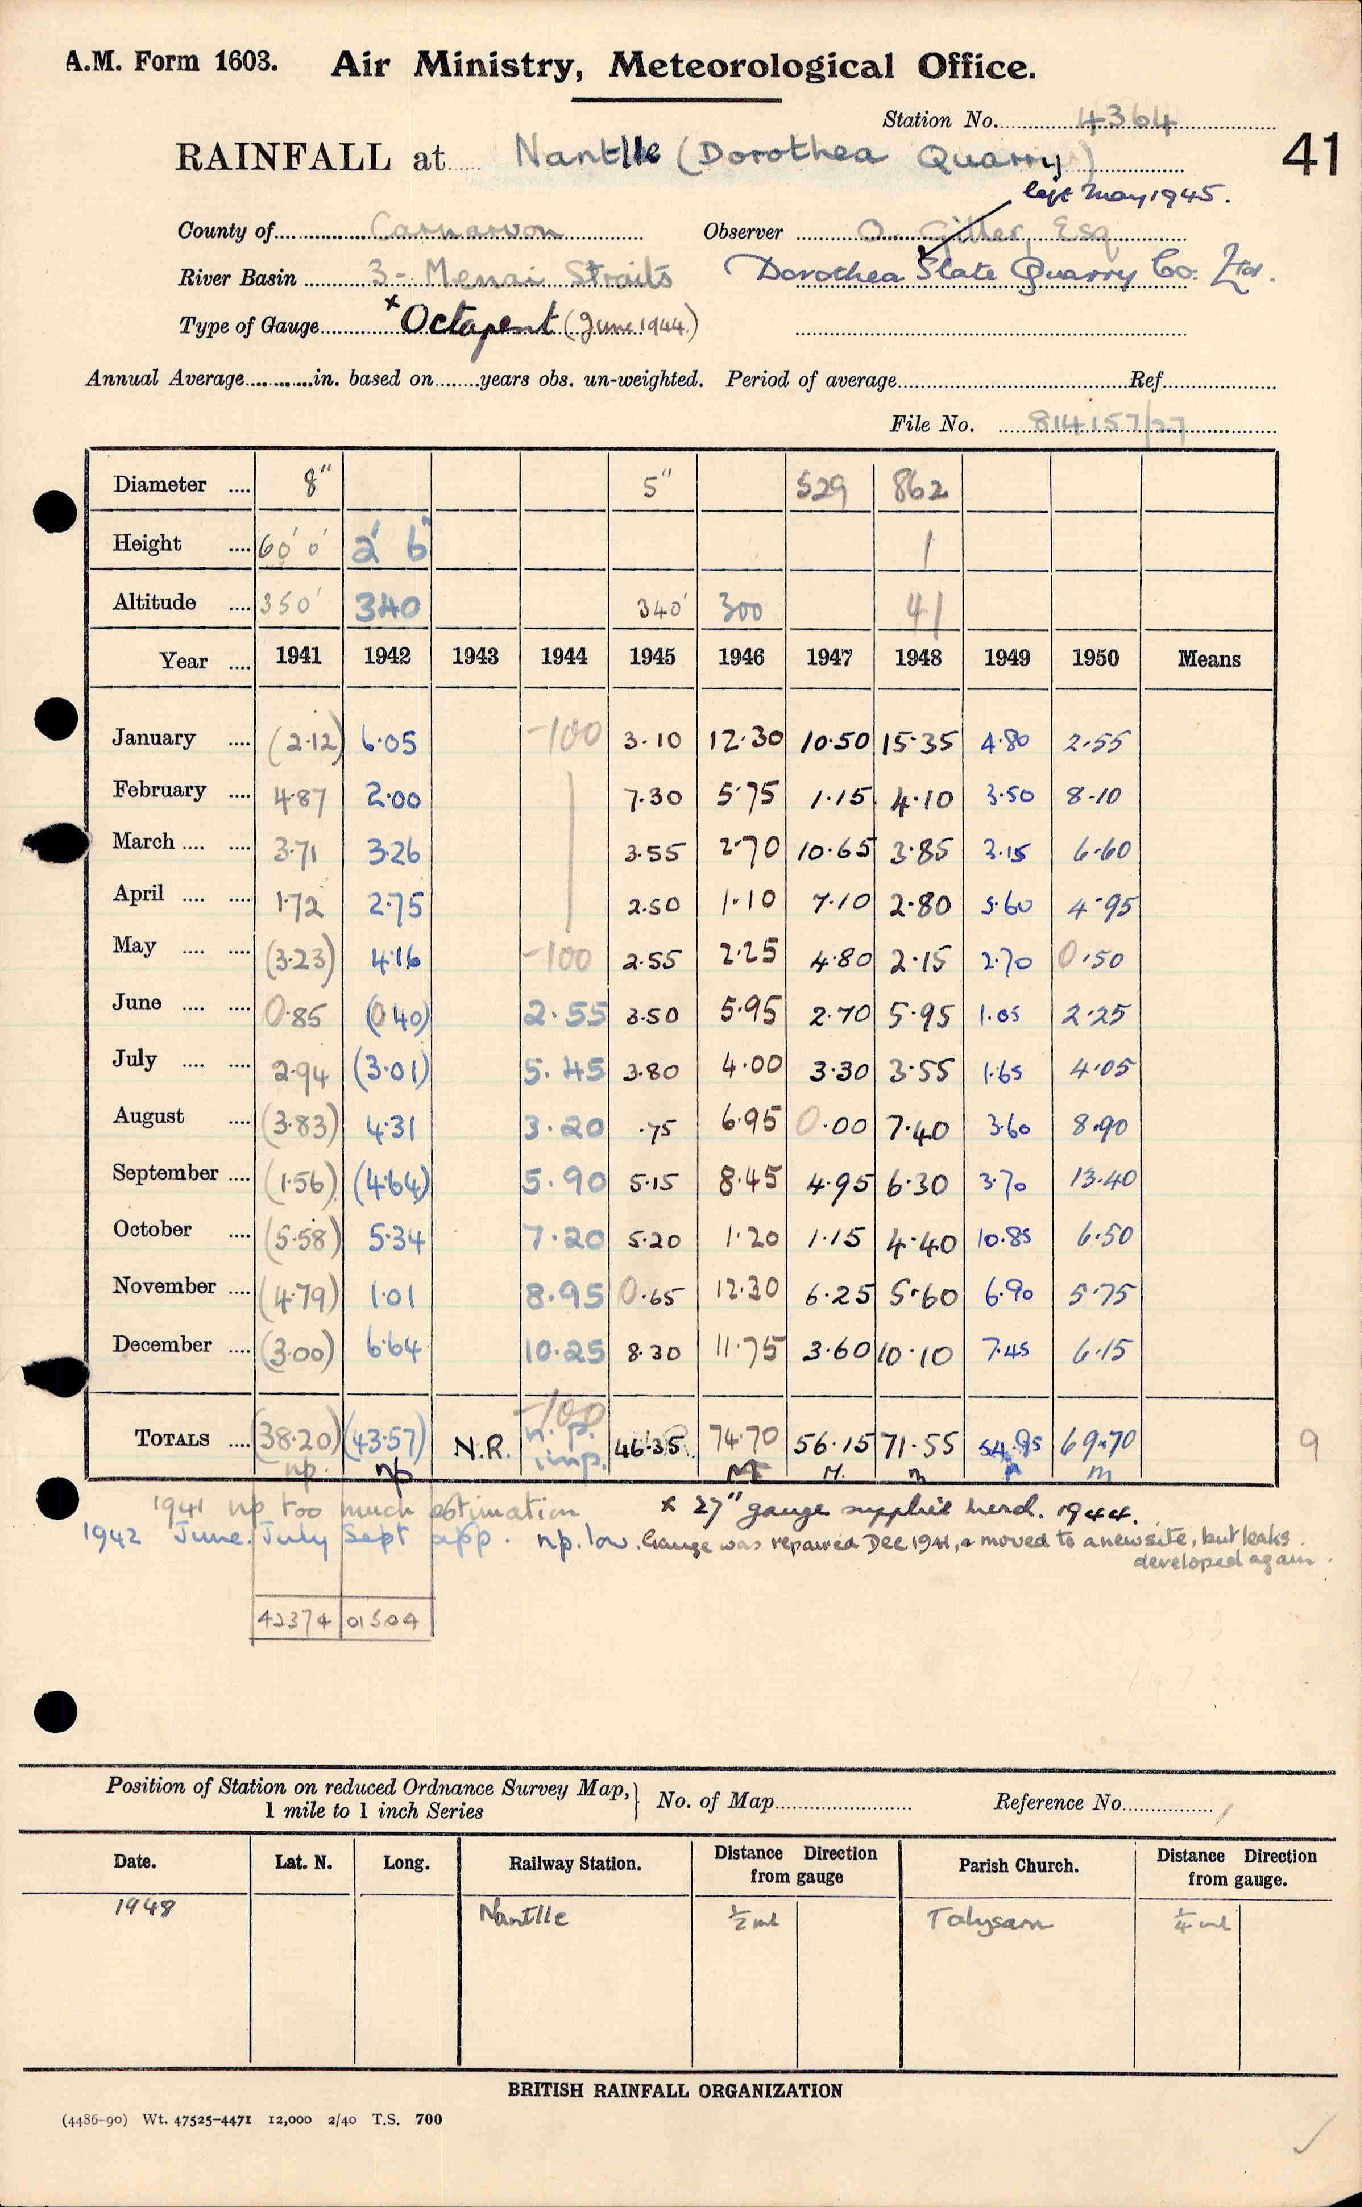 A.M. Form 1603. Air Ministry, Meteorological Office.
Station No. 4364
41
RAINFALL at Nantlle (Dorothea Quarry)
left May 1945.
County of Carnarvon Observer O. Esq
River Basin 3 - Menai Straits Dorothea Slate Quarry Co. Ltd.
Type of Gauge x Octapent (June 1944)
Annual Average in. based on years obs. un-weighted. Period of average Ref.
File No. 814157/27
Diameter 8" 5" 529 862
Height 60' 0' 2' 6" 1
Altitude 350' 340 340' 300 41
Year 1941 1942 1943 1944 1945 1946 1947 1948 1949 1950 Means
January (2.12) 6.05 -100 3.10 12.30 10.50 15.35 4.80 2.55
February 4.87 2.00 7.30 5.75 1.15 4.10 3.50 8.10
March 3.71 3.26 3.55 2.70 10.65 3.85 3.15 6.60
April 1.72 2.75 2.50 1.10 7.10 2.80 5.60 4.95
May (3.23) 4.16 -100 2.55 2.25 4.80 2.15 2.70 0.50
June 0.85 (0.40) 2.55 3.50 5.95 2.70 5.95 1.05 2.25
July 2.94 (3.01) 5.45 3.80 4.00 3.30 3.55 1.65 4.05
August (3.83) 4.31 3.20 .75 6.95 0.00 7.40 3.60 8.90
September (1.56) (4.64) 5.90 5.15 8.45 4.95 6.30 3.70 13.40
October (5.58) 5.34 7.20 5.20 1.20 1.15 4.40 10.85 6.50
November (4.79) 1.01 8.95 0.65 12.30 6.25 5.60 6.90 5.75
December (3.00) 6.64 10.25 8.30 11.75 3.60 10.10 7.45 6.15
-100
TOTALS (38.20) (43.57) N.R. n.p. 46.35 74.70 56.15 71.55 54.95 69.70 9
np. np imp. M. m m
1941 np too much estimation x 27" gauge supplied 1944.
1942 June, July Sept app. np. low. Gauge was repaired Dec 1941, & moved to a new site, but leaks
developed again.
42374 01504
Position of Station on reduced Ordnance Survey Map, 1 mile to 1 inch Series No. of Map Reference No.
Date. Lat. N. Long. Railway Station. Distance Direction from gauge Parish Church. Distance Direction from gauge.
1948 Nantlle ½ ml Talysarn ¼ ml
BRITISH RAINFALL ORGANIZATION
(4486-90) Wt. 47525-4471 12,000 2/40 T.S. 700